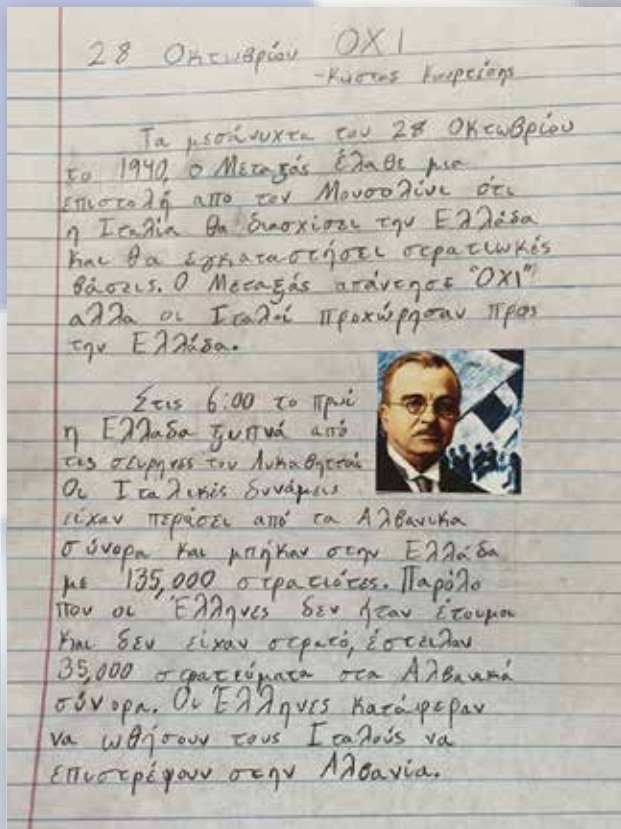 28 Οκτωβρίου ΟΧΙ
-Κώστας
Τα μεσάνυχτα του 28 Οκτωβρίου
το 1940, ο Μεταξάς έλαβε μια
επιστολή από τον Μουσολίνι ότι
η Ιταλία θα διασχίσει την Ελλάδα
και θα εγκαταστήσει στρατιωκές
βάσεις. Ο Μεταξάς απάντησε "ΟΧΙ"
αλλα οι Ιταλοί προχώρησαν προς
την Ελλάδα.
Στις 6:00 το πρωί
η Ελλαδα ξυπνά από
τις σειρηνες του Λυκαβηττού
Οι Ιταλικές δυνάμεις
είχαν περάσει από τα Αλβανικα
σύνορα και μπήκαν στην Ελλάδα
με 135,000 στρατιότες. Παρόλο
που οι Έλληνες δεν ήταν έτοιμοι
και δεν είχαν στρατό, έστειλαν
35,000 στρατεύματα στα Αλβανικά
σύνορα. Οι Έλληνες κατάφεραν
να ωθήσουν τους Ιταλούς να
επιστρέψουν στην Αλβανία.